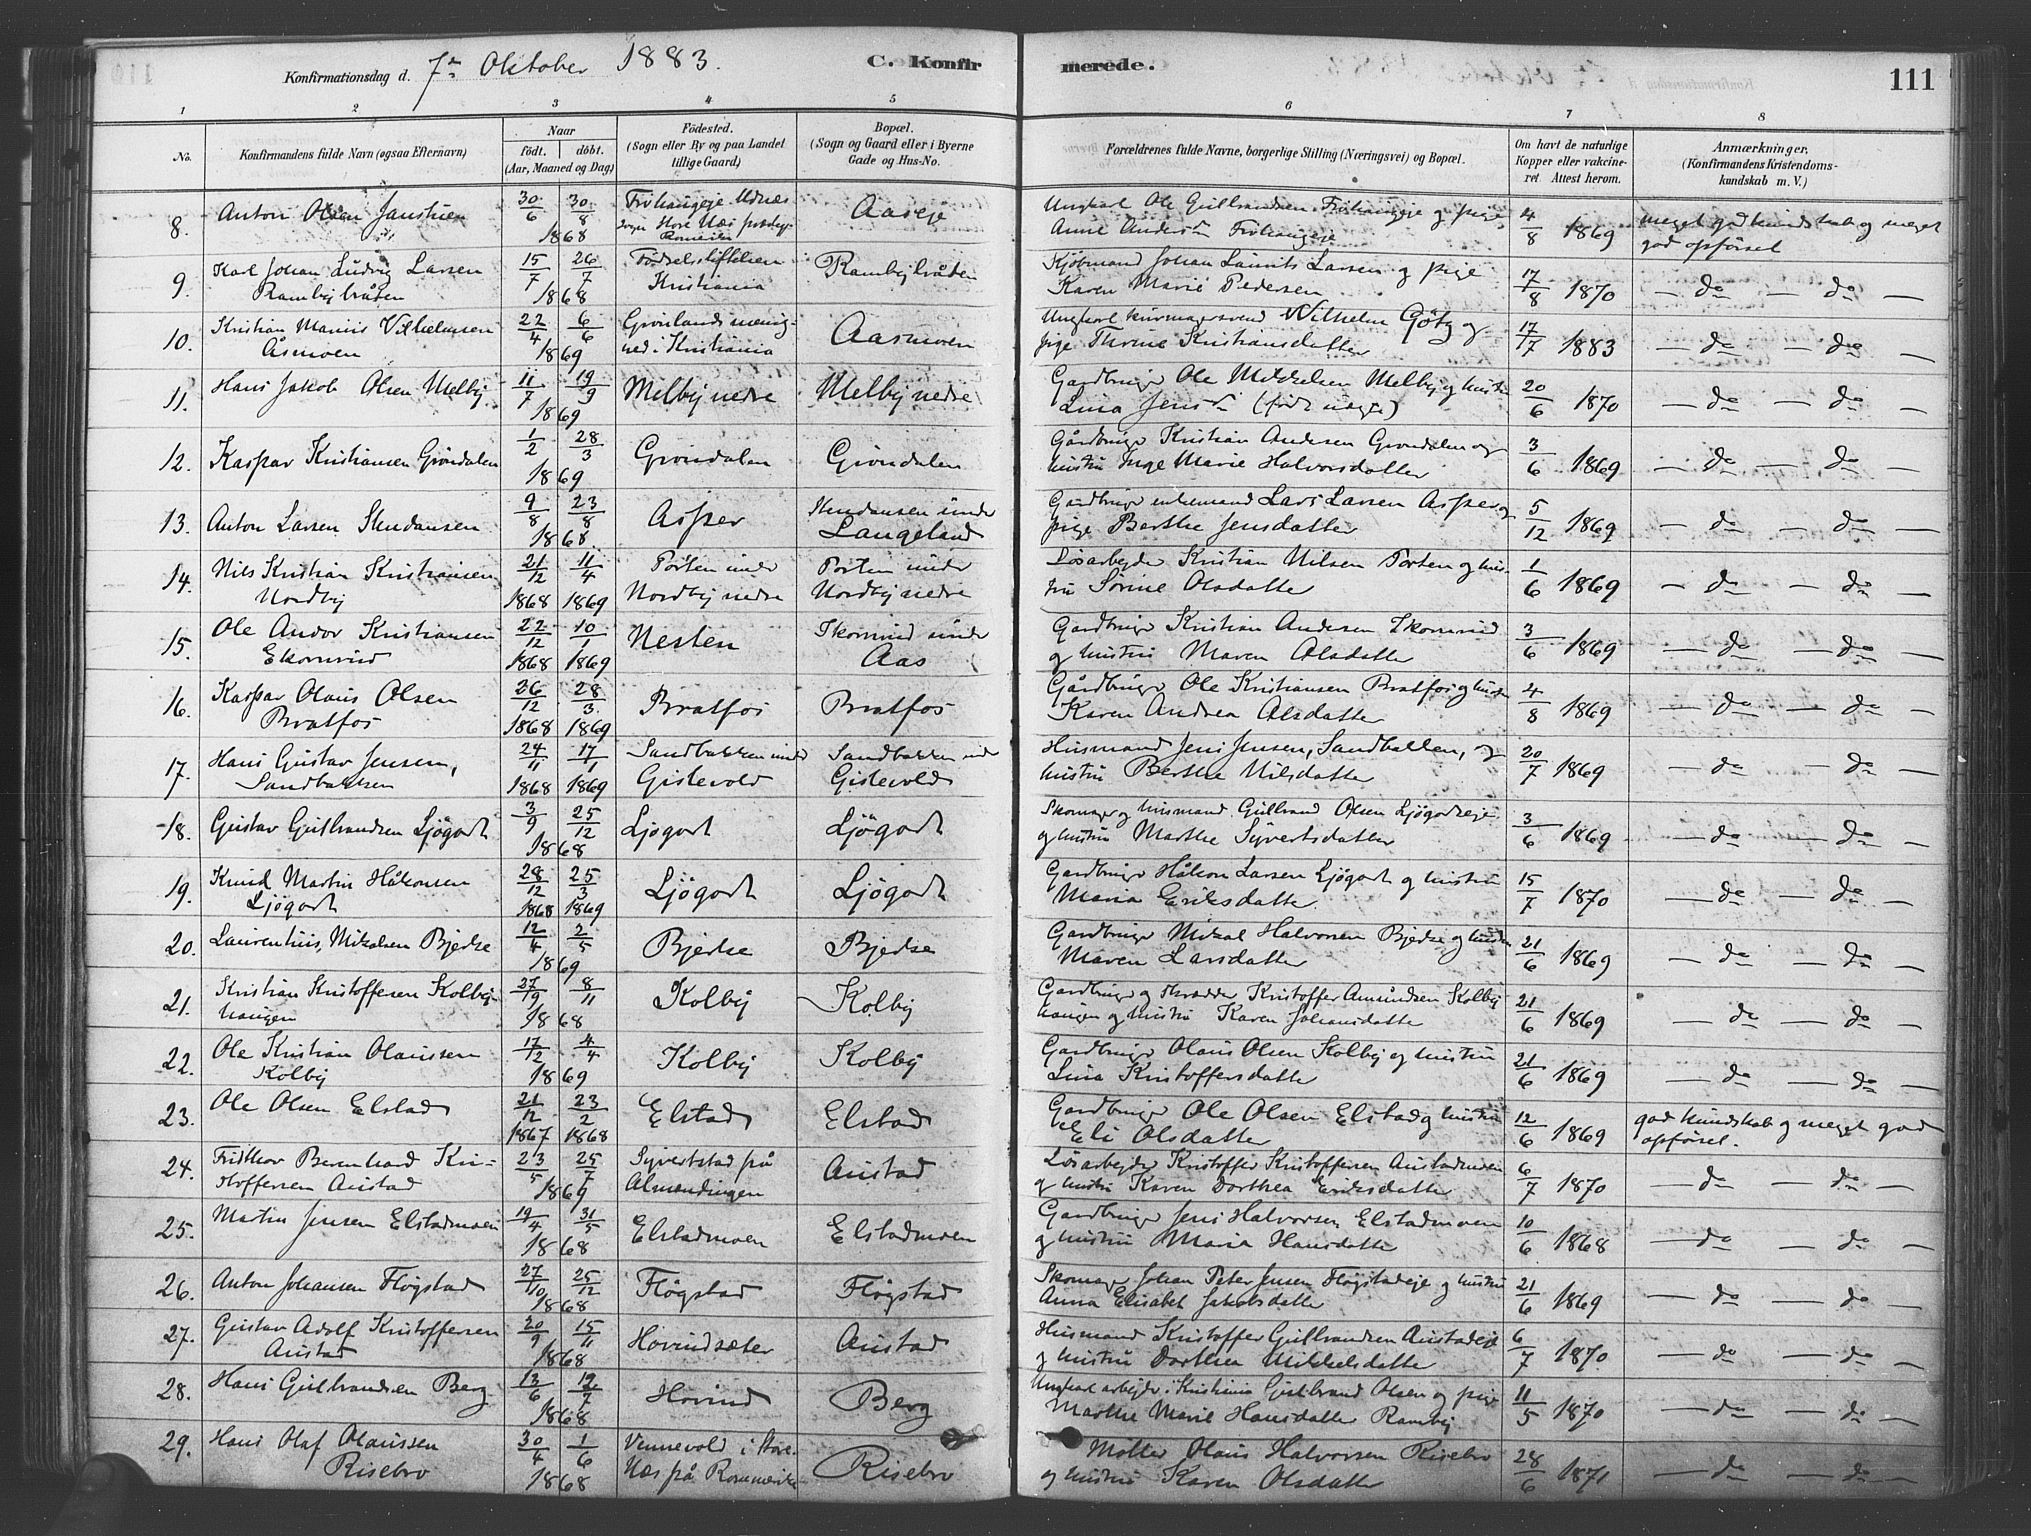 Konfirmationsdag d. 7de Oktober 1883. C. Konfirmerede. 111
1 2 3 4 5 6 7 8
No. Konfirmandens fulde Navn (ogsaa Efternavn) Naar født. døbt. (Aar, Maaned og Dag) Fødested. (Sogn eller By og paa Landet tillige Gaard) Bopæl. (Sogn og Gaard eller i Byerne Gade og Hus-No. Forældrenes fulde Navne, borgerlige Stilling (Næringsvei) og Bopæl. Om havt de naturlige Kopper eller vakcineret. Attest herom. Anmærkninger. (Konfirmandens Kristendomskundskab m. V.)
8. Anton Olsen 30/6 30/8 1868 Aaseje Ungkarl Ole Gulbrandsen og pige Anne Andersdn 4/8 1869 meget god kundskab og meget god opførsel
9. Karl Johan Ludvig Larsen Rambybråten 15/7 26/7 1868 Fødselsstiftelsen Kristiania Rambybråten Kjøbmand Johan Laurits Larsen og pige Karen Marie Pedersen 17/8 1870 — do — do —
10. Kristian Marius Vilhelmsen Åsmoen 22/4 6/6 1869 Grønlands menighed i Kristiania Aasmoen Ungkarl Wilhelm Götz og pige Thrine Kristiansdatter 17/7 1883 — do — do —
11. Hans Jakob Olsen Melby 11/7 19/9 1869 Melby nedre Melby nedre Gardbruger Ole Mikkelsen Melby og hustru Lina Jensdn 20/6 1870 — do — do —
12. Kaspar Kristiansen Gröndalen 1/2 28/3 1869 Gröndalen Gröndalen Gårdbruger Kristian Andersen Gröndalen og hustru Inge Marie Halvorsdatter 3/6 1869 — do — do —
13. Anton Larsen Stendansen 9/8 23/8 1868 Asper Stendansen under Langeland Gardbruger enkemand Lars Larsen Asper og pige Berthe Jensdatter 5/12 1869 — do — do —
14. Nils Kristian Kristiansen Nordby 21/12 1868 11/4 1869 Porten under Nordby nedre Porten under Nordby nedre Løsarbejder Kristian Nilsen Porten og hustru Sörine Olsdatter 1/6 1869 — do — do —
15. Ole Andor Kristiansen Ekornrud 22/12 1868 10/1 1869 Nesten Ekornrud under Aas Gardbruger Kristian Andersen Ekornrud og hustru Maren Olsdatter 3/6 1869 — do — do —
16. Kaspar Olaus Olsen Bratfos 26/12 1868 28/3 1869 Bratfos Bratfos Gårdbruger Ole Kristiansen Bratfos og hustru Karen Andrea Olsdatter 4/8 1869 — do — do —
17. Hans Gustav Jensen, Sandbakken 24/11 1868 17/1 1869 Sandbakken under Gislevold Sandbakken under Gislevold Husmand Jens Jensen, Sandbakken, og hustru Berthe Nilsdatter 20/7 1869 — do — do —
18. Gustav Gulbrandsen Ljögodt 3/9 25/12 1868 Ljögodt Ljögodt Skomager og husmand Gulbrand Olsen Ljögodteje og hustru Marthe Syvertsdatter 3/6 1869 — do — do —
19. Knud Martin Håkonsen Ljögodt 28/12 1868 25/3 1869 Ljögodt Ljögodt Gardbruger Håkon Larsen Ljögodt og hustru Maria Eriksdatter 15/7 1870 — do — do —
20. Laurentius Mikalsen Bjerke 12/4 2/5 1869 Bjerke Bjerke Gardbruger Mikal Halvorsen Bjerke og hustru Maren Larsdatter 21/6 1869 — do — do —
21. Kristian Kristoffersen Kolbyhaugen 27/9 8/11 1868 Kolby Kolby Gardbruger og skrædder Kristoffer Amundsen Kolbyhaugen og hustru Karen Johansdatter 21/6 1869 — do — do —
22. Ole Kristian Olaussen Kolby 17/2 4/4 1869 Kolby Kolby Gardbruger Olaus Olsen Kolby og hustru Lina Kristoffersdatter 21/6 1869 — do — do —
23. Ole Olsen Elstad 21/12 1867 23/2 1868 Elstad Elstad Gardbruger Ole Olsen Elstad og hustru Eli Olsdatter 12/6 1869 god kundskab og meget god opførsel.
24. Fridthov Bernhard Kristoffersen Austad 23/5 25/7 1869 Syvertstad på Almendingen Austad Løsarbejder Kristoffer Kristoffersen Austadmoen og hustru Karen Dorthea Eriksdatter 6/7 1870 — do — do —
25. Martin Jensen Elstadmoen 19/4 31/5 1868 Elstadmoen Elstadmoen Gardbruger Jens Halvorsen Elstadmoen og hustru Maria Hansdatter 10/6 1868 — do — do —
26. Anton Johansen Flögstad 27/10 25/12 1868 Flögstad Flögstad Skomager Johan Peter Jensen Flögstadeje og hustru Anna Elisabet Jakobsdatter 21/6 1869 — do — do —
27. Gustav Adolf Kristoffersen Austad 20/9 15/11 1868 Hovindsæter Austad Husmand Kristoffer Gulbrandsen Austadeje og hustru Dorthea Mikkelsdatter 6/7 1870 — do — do —
28. Hans Gulbrandsen Berg 13/6 12/7 1868 Hovind Berg Ungkarl arbejder i Kristiania Gulbrand Olsen og pige Marthe Marie Hansdatter Ramby 11/5 1870 — do — do —
29. Hans Olaf Olaussen Risebro 30/4 1/6 1868 Vennevold i Store Næs på Romerike Risebro Møller Olaus Halvorsen Risebro og hustru Karen Olsdatter 28/6 1871 — do — do —